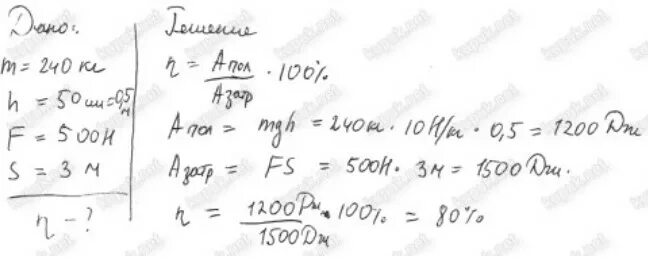 Дано:
m = 240 кг
h = 50 см = 0,5 м
F = 500 Н
S = 3 м
η - ?
Решение
η = Aпол / Aзатр · 100%
Aпол = mgh = 240кг · 10 Н/кг · 0,5 = 1200 Дж
Aзатр = FS = 500Н · 3м = 1500 Дж.
η = 1200Дж / 1500Дж · 100% = 80%